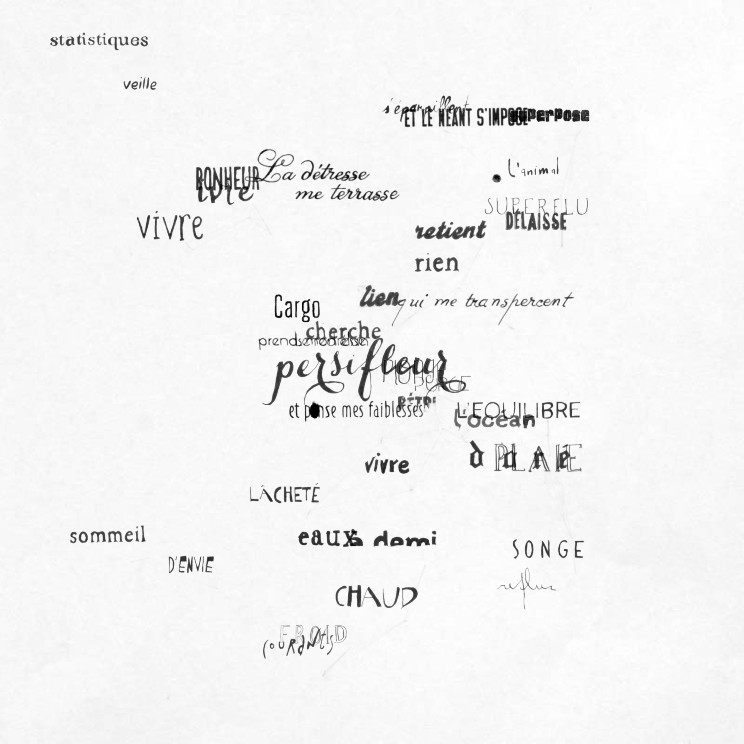 statistiques
veille
s'éparpillent
ET LE NÉANT S'IMPOSE
superpose
BONHEUR
ivre
La détresse
me terrasse
L'animal
SUPERFLU
DÉLAISSE
vivre
retient
rien
lien
qui me transpercent
Cargo
cherche
persifleur
et panse mes faiblesses
L'EQUILIBRE
L'océan
PLAIE
vivre
LÂCHETÉ
sommeil
eaux
à demi
SONGE
D'ENVIE
reflux
CHAUD
FROID
COURANTS